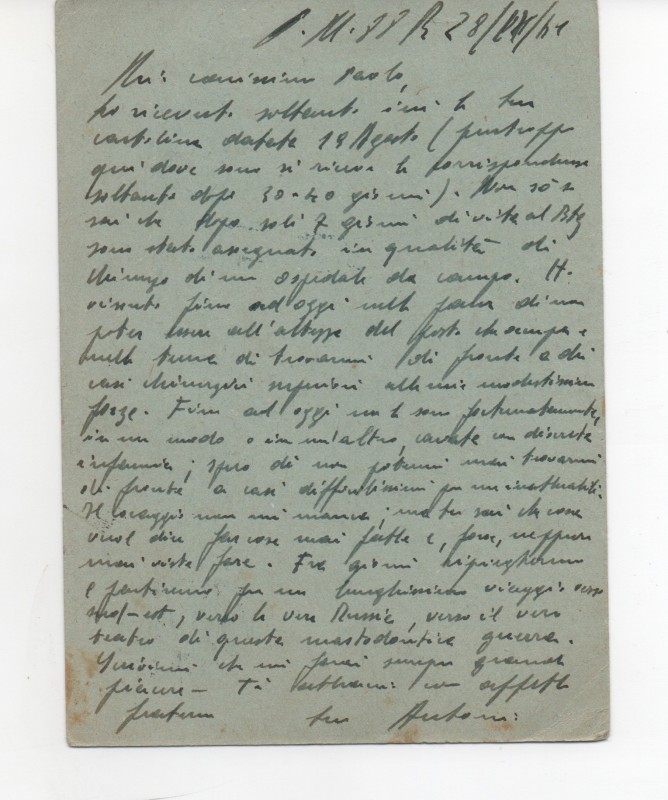 P. M. 88 R 28/VIII/41
Mio carissimo Paolo,
ho ricevuto soltanto ieri la tua
cartolina datata 18 Agosto (purtroppo
qui dove sono si riceve la corrispondenza
soltanto dopo 30-40 giorni). Non so se
sai che dopo soli 7 giorni di vita al Btg
sono stato assegnato in qualità di
chirurgo di un ospedale da campo. Ho
vissuto fino ad oggi nella paura di non
poter essere all'altezza del posto che occupo e
nella tema di trovarmi di fronte a dei
casi chirurgici superiori alle mie modestissime
forze. Fino ad oggi me la sono fortunatamente,
in un modo o in un'altro, cavata con discreta
; spero di non potermi mai trovarmi
di fronte a casi difficilissimi per me
Il coraggio non mi manca; ma tu sai che cosa
vuol dire far cose mai fatte e, forse, neppure
mai viste fare. Fra giorni ripiegheremo
e partiremo per un lunghissimo viaggio verso
sud-est, verso la vera Russia, verso il vero
teatro di questa mastodontica guerra.
Scrivimi che mi farai sempre grande
piacere - Ti abbraccio con affetto
fraterno tuo Antonio